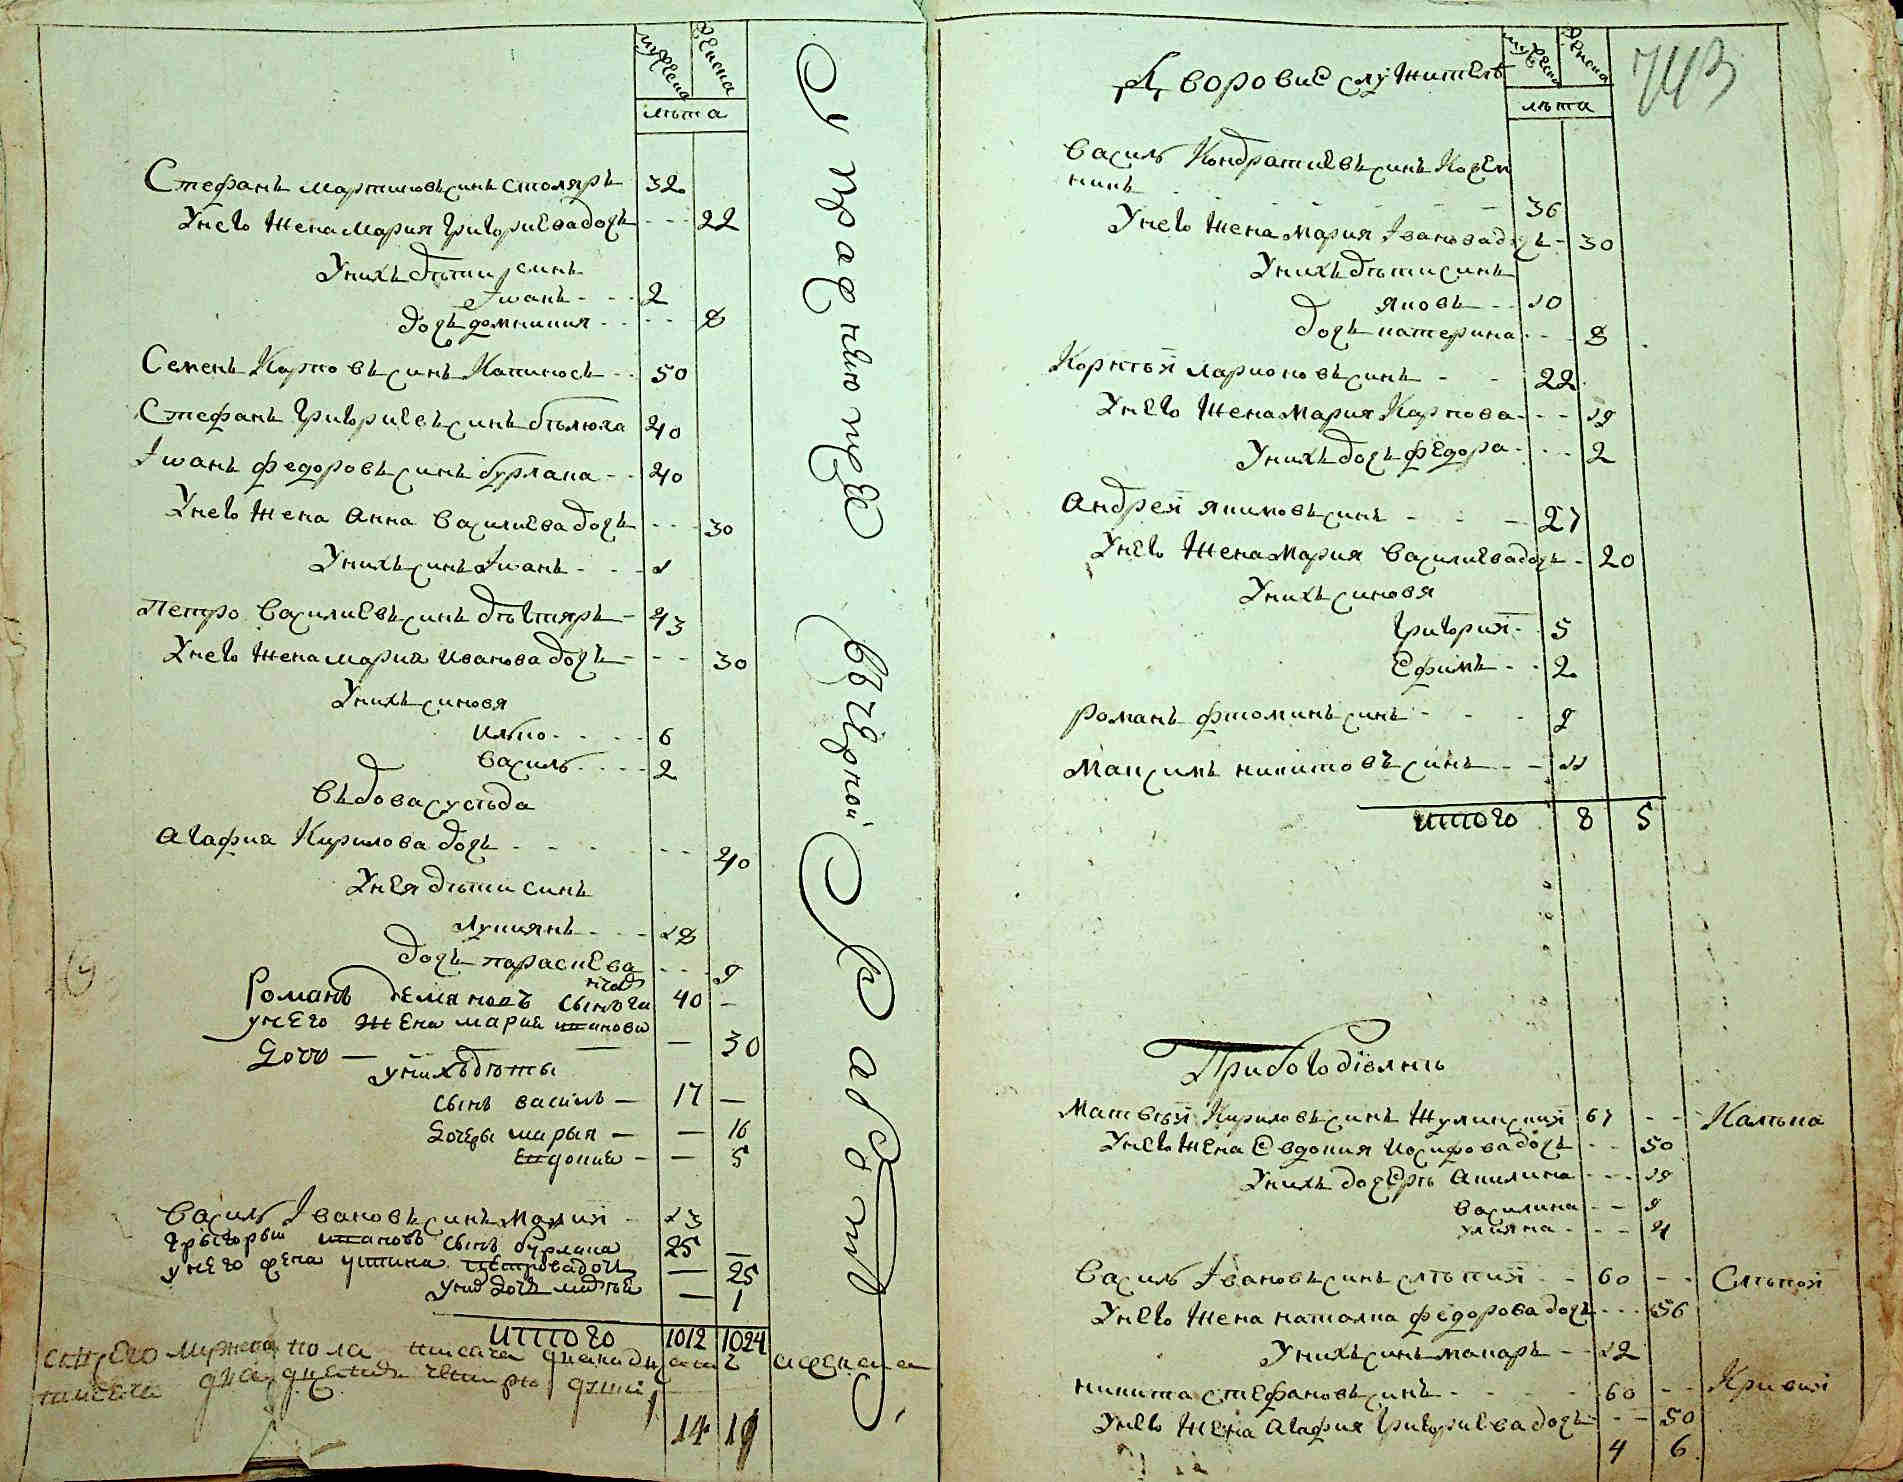 мужеска
женска
лѣта
Стефанъ Мартиновъ синъ столяръ 32
Унего жена Мария Григориева дочь - - - 22
Унихъ дѣти синъ
Іванъ - - - 2
дочь домникия - - - - 8
Семенъ Карповъ синъ Капиносъ - - 50
Стефанъ Григориевъ синъ бѣлюха 40
Іванъ федоровъ синъ бурлака - - 40
Унего жена Анна Василиева дочь - - - 30
Унихъ синъ Іванъ - - - 1
Петро Василиевъ синъ дѣгтяръ - 43
Унего жена Мария Иванова дочь - - - 30
Унихъ синовя
Илко - - - - 6
Василь - - - - 2
Въдова сусѣда
Агафиа Кирилова дочь - - - - - - 40
Унея дѣти синъ
Лукиянъ - - - 18
дочь параскева - - - 9
Романъ демяновъ сынъ 40 -
унего жена мариа иванова
дочь — — — — 30
унихъ дѣты
сынъ василь — 17 —
дочеры марыя — — 16
евдокия — — 5
Василь Івановъ синъ малий - 13
Григорыи ивановъ сынъ бурлака 25 —
унего жена устина петрова дочь — 25
уних дочь — 1
итого 1012 1024
сего мужеска пола тисяча дванадцать а женска
тисяча двадцять чтири души
14 19
Упраднюю пред
вѣчерной
Работи
743
Дворовие служителѣ
мужеска
женска
лѣта
Василь Кондратиевъ синъ Козем
нинъ - - - - - 36
Унего жена Мария Іванова дочь - 30
Унихъ дѣти синъ
Яковъ - - 10
дочь катерина - - - 8
Корнѣй Ларионовъ синъ - - 22
Унего жена Мария Карпова - - - 19
Унихъ дочь федора - - - 2
Андрей Якимовъ синъ - - - 27
Унего жена Мария Василиева дочь - 20
Унихъ синовя
Григорий - - 5
Ефимъ - - 2
Романъ фтоминъ синъ - - - 9
Максимъ никитовъ синъ - - 11
итого 8 5
При богодѣлнѣ
Матвѣй Кириловъ синъ Жулинский 67 - - Калѣка
Унего жена Евдокия Иосифова дочь - - 50
Унихъ дочерѣ Акилина - - - 19
Василина - - 9
улияна - - - 4
Василь Івановъ синъ слѣпий - - 60 - - Слѣпой
Унего жена наталка федорова дочь - - - 56
Унихъ синъ макаръ - - 12
никита стефановъ синъ - - - - - 60 - - Кривий
Унего жена Агафия Григориева дочь - - - 50
4 6